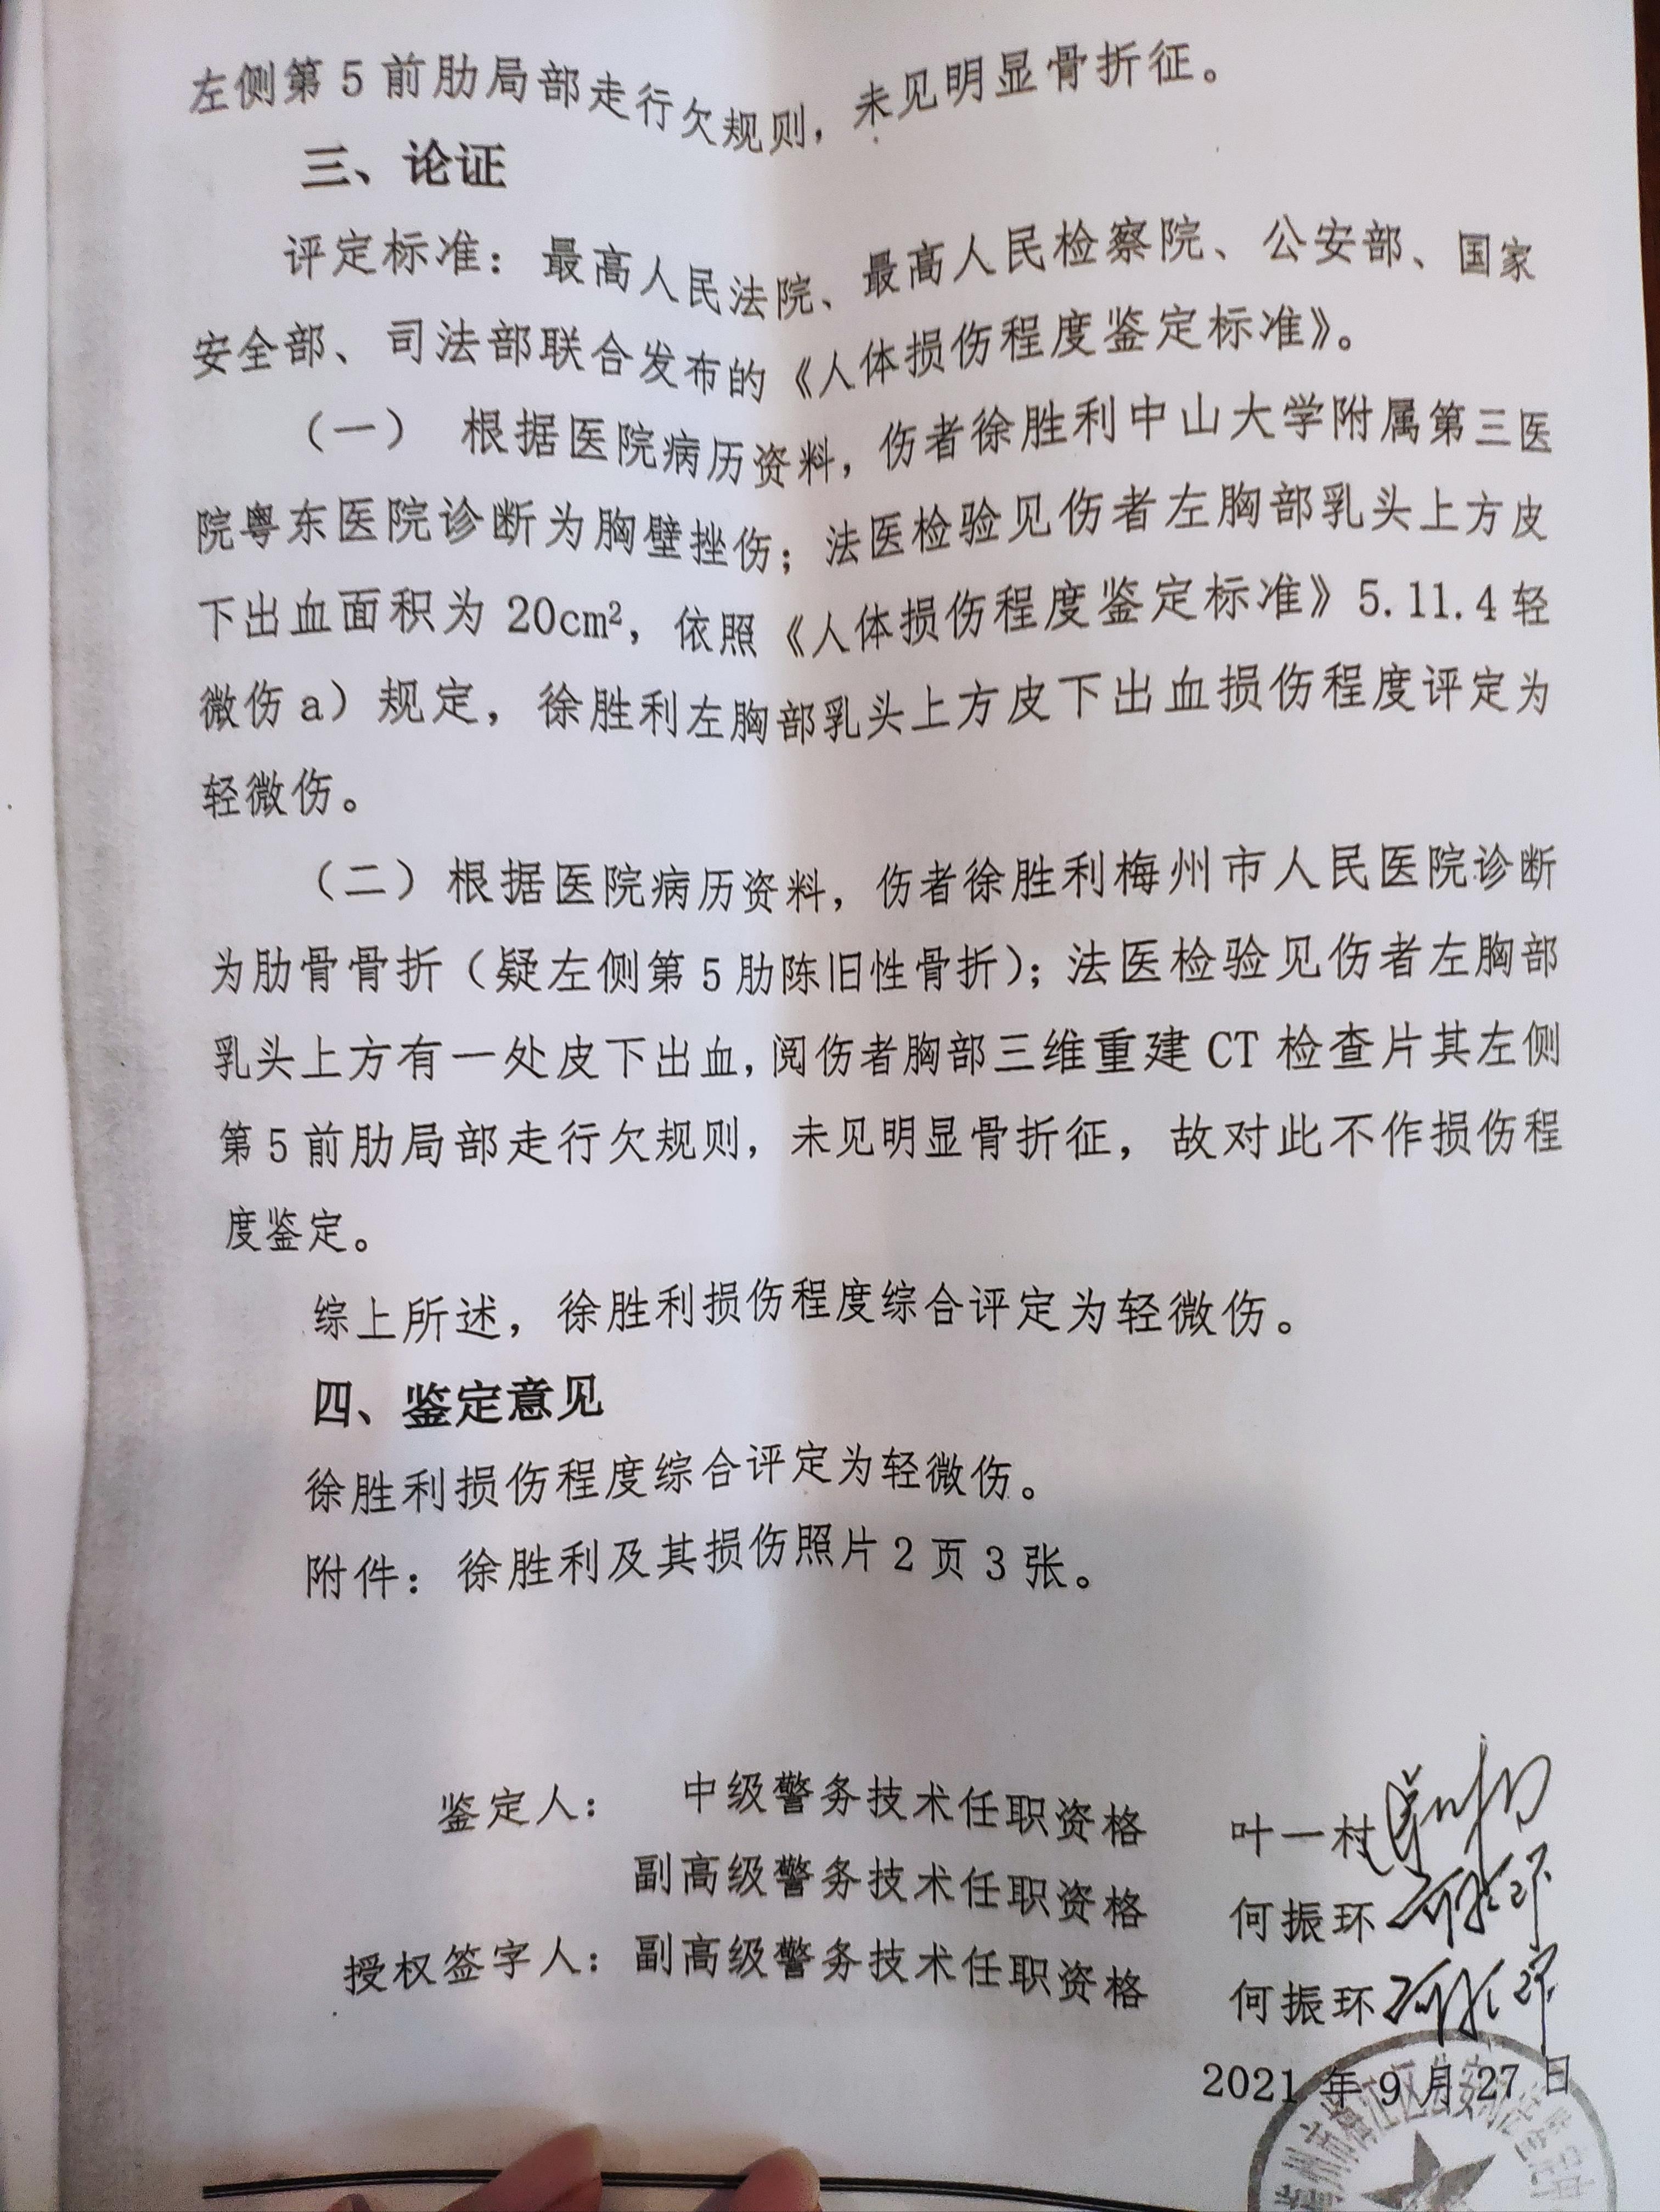 左侧第5前肋局部走行欠规则，未见明显骨折征。
三、论证
评定标准：最高人民法院、最高人民检察院、公安部、国家
安全部、司法部联合发布的《人体损伤程度鉴定标准》。
（一） 根据医院病历资料，伤者徐胜利中山大学附属第三医
院粤东医院诊断为胸壁挫伤；法医检验见伤者左胸部乳头上方皮
下出血面积为20cm²，依照《人体损伤程度鉴定标准》5.11.4轻
微伤a）规定，徐胜利左胸部乳头上方皮下出血损伤程度评定为
轻微伤。
（二）根据医院病历资料，伤者徐胜利梅州市人民医院诊断
为肋骨骨折（疑左侧第5肋陈旧性骨折）；法医检验见伤者左胸部
乳头上方有一处皮下出血，阅伤者胸部三维重建CT检查片其左侧
第5前肋局部走行欠规则，未见明显骨折征，故对此不作损伤程
度鉴定。
综上所述，徐胜利损伤程度综合评定为轻微伤。
四、鉴定意见
徐胜利损伤程度综合评定为轻微伤。
附件：徐胜利及其损伤照片2页3张。
鉴定人： 中级警务技术任职资格 叶一村
副高级警务技术任职资格 何振环 何振环
授权签字人：副高级警务技术任职资格 何振环 何振环
2021年9月27日